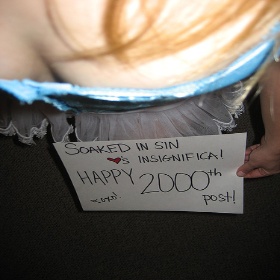 SOAKED IN SIN
♥'s INSIGNIFICA!
HAPPY 2000th
post!